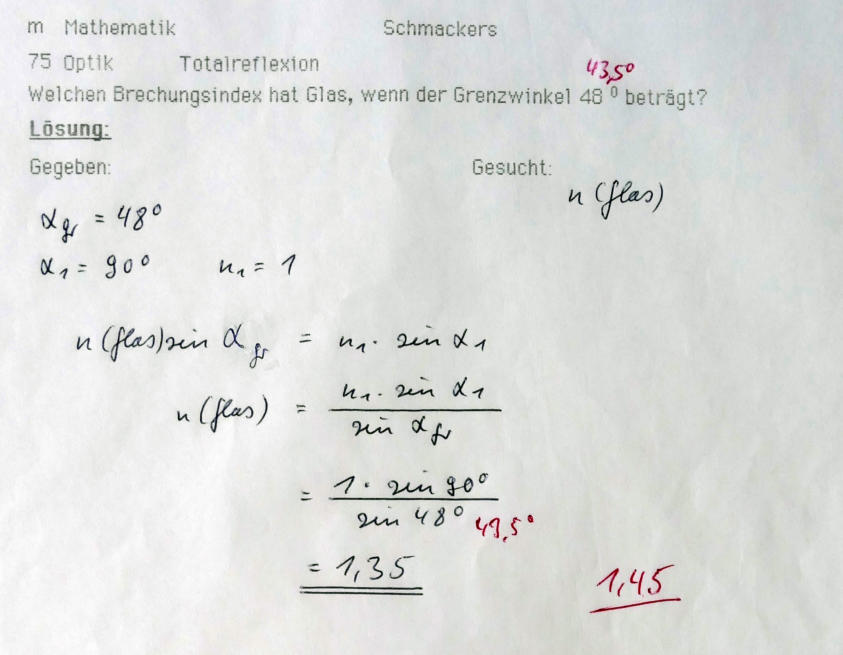 m Mathematik Schmackers
75 Optik Totalreflexion
43,5°
Welchen Brechungsindex hat Glas, wenn der Grenzwinkel 48 ° beträgt?
Lösung:
Gegeben: Gesucht:
n (Glas)
α gr = 48°
α1 = 90° n1 = 1
n (Glas) sin α gr = n1 · sin α1
n (Glas) = n1 · sin α1
sin α gr
= 1 · sin 90°
sin 48° 43,5°
= 1,35 1,45